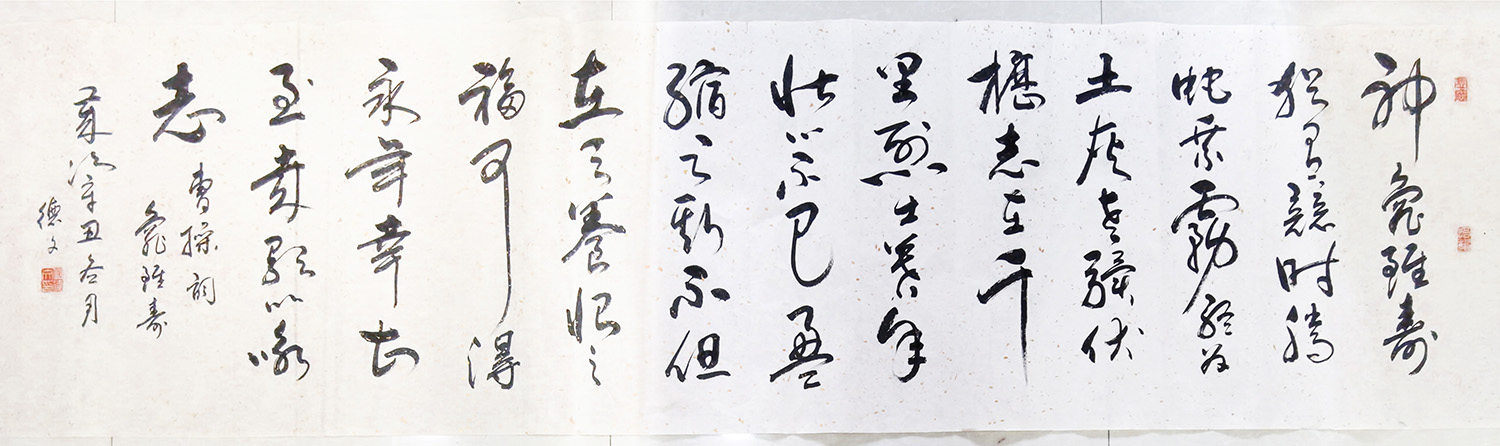 神龜雖壽
猶有竟時騰
蛇乘霧終為
土灰老驥伏
櫪志在千
里烈士暮年
壯心不已盈
縮之期不但
在天養怡之
福可得
永年幸甚
至哉歌以咏
志
曹操詞
龜雖壽
歲次辛丑冬月
德文